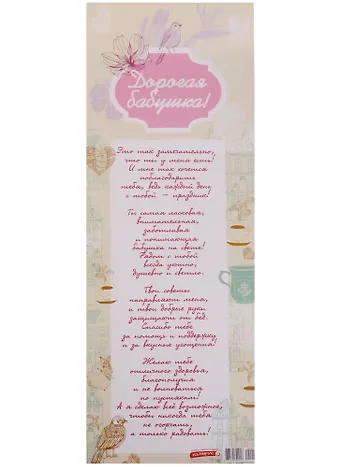 Дорогая
бабушка!
Это так замечательно,
что ты у меня есть!
И мне так хочется
поблагодарить
тебя, ведь каждый день
с тобой — праздник!
Ты самая ласковая,
внимательная,
заботливая
и понимающая
бабушка на свете!
Рядом с тобой
всегда уютно,
душевно и светло.
Твои советы
направляют меня,
и твои добрые руки
защищают от бед.
Спасибо тебе
за помощь и поддержку
и за вкусные угощения!
Желаю тебе
отличного здоровья,
благополучия
и не волноваться
по пустякам!
А я сделаю всё возможное,
чтобы никогда тебя
не огорчать,
а только радовать!